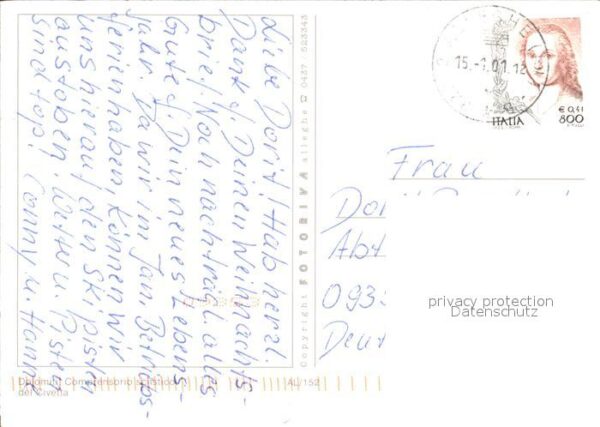 Liebe Dorit! Hab herzl.
Dank f. Deinen Weihnachts-
brief. Noch nachträgl. alles
Gute f. Dein neues Lebens-
jahr. Da wir im Jan. Betriebs-
ferien haben, können wir
uns hier auf den Skipisten
austoben. Wetter u. Pisten
sind top! Conny u. Hanno
Copyright FOTORIVA alleghe ☎ 0437 / 523343
Dolomiti: Comprensorio sciistico
del Civetta
AL/152
15.-1.01.12
ITALIA
€ 0,41
800
Frau
Abt
Deut
privacy protection
Datenschutz